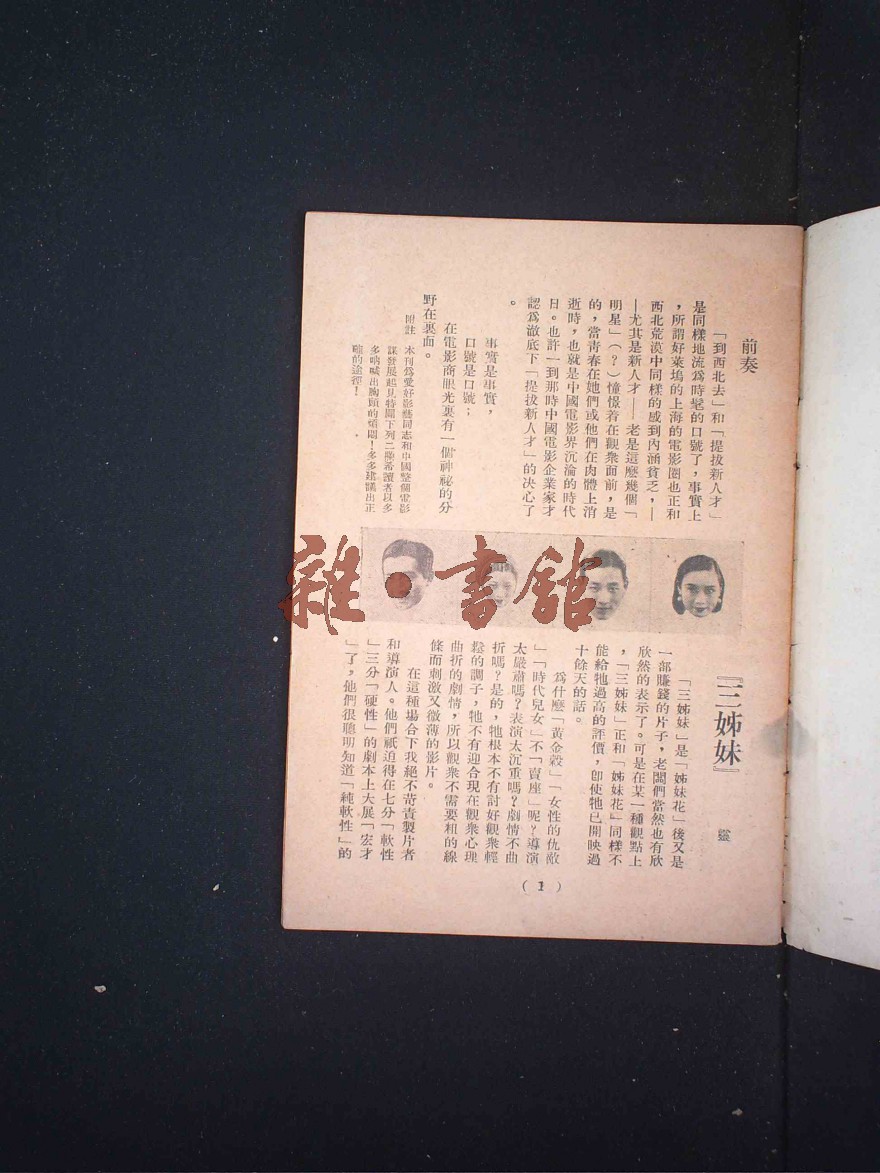 前奏
「到西北去」和「提拔新人才」
是同樣地流爲時髦的口號了，事實上
，所謂好萊塢的上海的電影圈也正和
西北荒漠中同樣的感到內涵貧乏，—
—尤其是新人才——老是這麼幾個「
明星」（？）憧憬着在觀衆面前，是
的，當靑春在她們或他們在肉體上消
逝時，也就是中國電影界沉淪的時代
日。也許一到那時中國電影企業家才
認爲澈底下「提拔新人才」的决心了
。
事實是事實，
口號是口號；
在電影商眼光裏有一個神祕的分
野在裏面。
附註　本刊爲愛好影藝同志和中國整個電影
謀發展起見特闢下列二欄希讀者以多
多吶喊出胸頭的煩悶！多多建議出正
確的途徑！
『三姊妹』
靈
「三姊妹」是「姊妹花」後又是
一部賺錢的片子，老闆們當然也有欣
欣然的表示了。可是在某一種觀點上
，「三姊妹」正和「姊妹花』同樣不
能給牠過高的評價，卽使牠已開映過
十餘天的話。
爲什麼「黃金穀」「女性的仇敵
」「時代兒女」不「賣座」呢？導演
太嚴肅嗎？表演太沉重嗎？劇情不曲
折嗎？是的，牠根本不有討好觀衆輕
鬆的調子，牠不有迎合現在觀衆心理
曲折的劇情，所以觀衆不需要粗的線
條而刺激又微薄的影片。
在這種場合下我絕不苛責製片者
和導演人。他們祇迫得在七分「軟性
」三分「硬性」的劇本上大展「宏才
」了，他們很聰明知道「純軟性」的
（1）
雜·書館